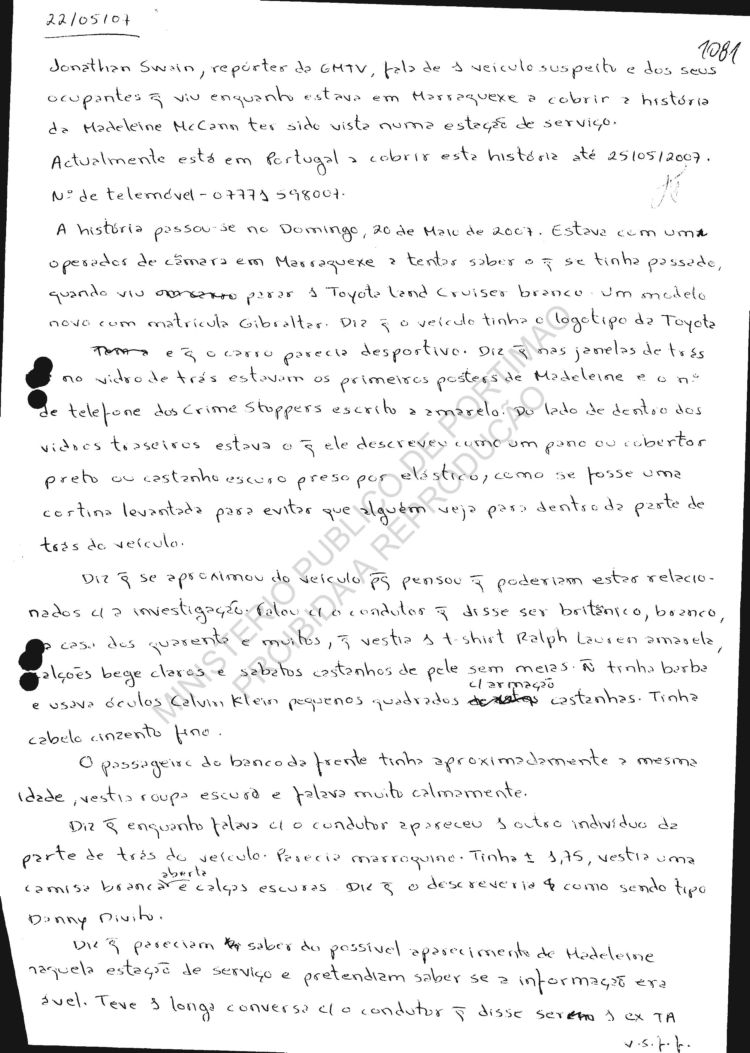 22/05/07
1081
Jonathan Swain, repórter da GMTV, fala de 1 veículo suspeito e dos seus
ocupantes q̄ viu enquanto estava em Marraquexe a cobrir a história
da Madeleine McCann ter sido vista numa estação de serviço.
Actualmente está em Portugal a cobrir esta história até 25/05/2007.
Nº de telemóvel - 07771 598007.
A história passou-se no Domingo, 20 de Maio de 2007. Estava com uma
operador de câmara em Marraquexe a tentar saber o q̄ se tinha passado,
quando viu parar 1 Toyota Land Cruiser branco. Um modelo
novo com matrícula Gibraltar. Diz q̄ o veículo tinha o logotipo da Toyota
e q̄ o carro parecia desportivo. Diz q̄ nas janelas de trás
no vidro de trás estavam os primeiros posters de Madeleine e o nº
de telefone dos Crime Stoppers escrito a amarelo. Do lado de dentro dos
vidros traseiros estava o q̄ ele descreveu como um pano ou cobertor
preto ou castanho escuro preso por elástico, como se fosse uma
cortina levantada para evitar que alguém veja para dentro da parte de
trás do veículo.
Diz q̄ se aproximou do veículo pq̄ pensou q̄ poderiam estar relacio-
nados c/ a investigação. Falou c/ o condutor q̄ disse ser britânico, branco,
casa dos quarenta e muitos, q̄ vestia 1 t-shirt Ralph Lauren amarela,
calções bege claros e sapatos castanhos de pele sem meias. Ñ tinha barba
e usava óculos Calvin Klein pequenos quadrados c/ armação castanhas. Tinha
cabelo cinzento fino.
O passageiro do banco da frente tinha aproximadamente a mesma
idade, vestia roupa escura e falava muito calmamente.
Diz q̄ enquanto falava c/ o condutor apareceu 1 outro indivíduo da
parte de trás do veículo. Parecia marroquino. Tinha ± 1,75, vestia uma
camisa branca aberta e calças escuras. Diz q̄ o descreveria como sendo tipo
Danny Divito.
Diz q̄ pareciam saber do possível aparecimento de Madeleine
naquela estação de serviço e pretendiam saber se a informação era
ável. Teve 1 longa conversa c/ o condutor q̄ disse ser 1 ex TA
v.s.f.f.
MINISTÉRIO PUBLICO DE PORTIMAO
PROIBIDA A REPRODUÇÃO